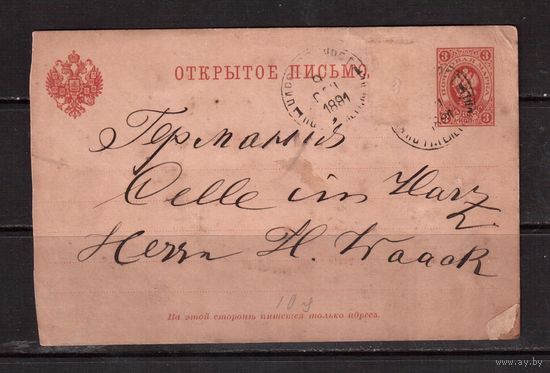 ОТКРЫТОЕ ПИСЬМО.
1891
3 3
1891
Германія
Celle im Harz
Herrn H. Waack
10 у
На этой сторонѣ пишется только адресъ.
www.ay.by